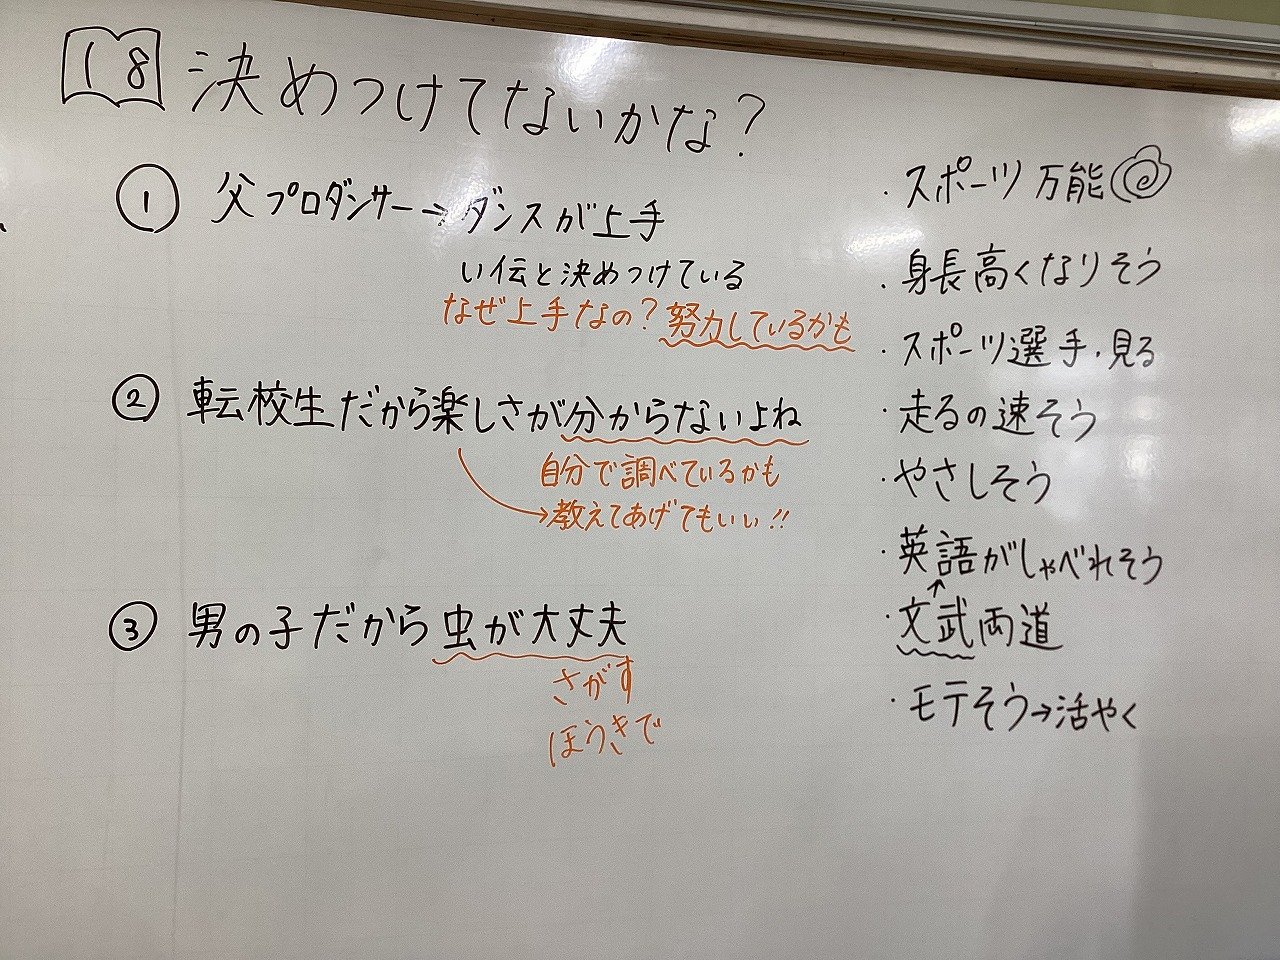 18 決めつけてないかな?
① 父プロダンサー⇒ダンスが上手
い伝と決めつけている
なぜ上手なの?努力しているかも
② 転校生だから楽しさが分からないよね
自分で調べているかも
→教えてあげてもいい!!
③ 男の子だから虫が大丈夫
さがす
ほうきで
・スポーツ万能
・身長高くなりそう
・スポーツ選手・見る
・走るの速そう
・やさしそう
・英語がしゃべれそう
↑
・文武両道
・モテそう→活やく